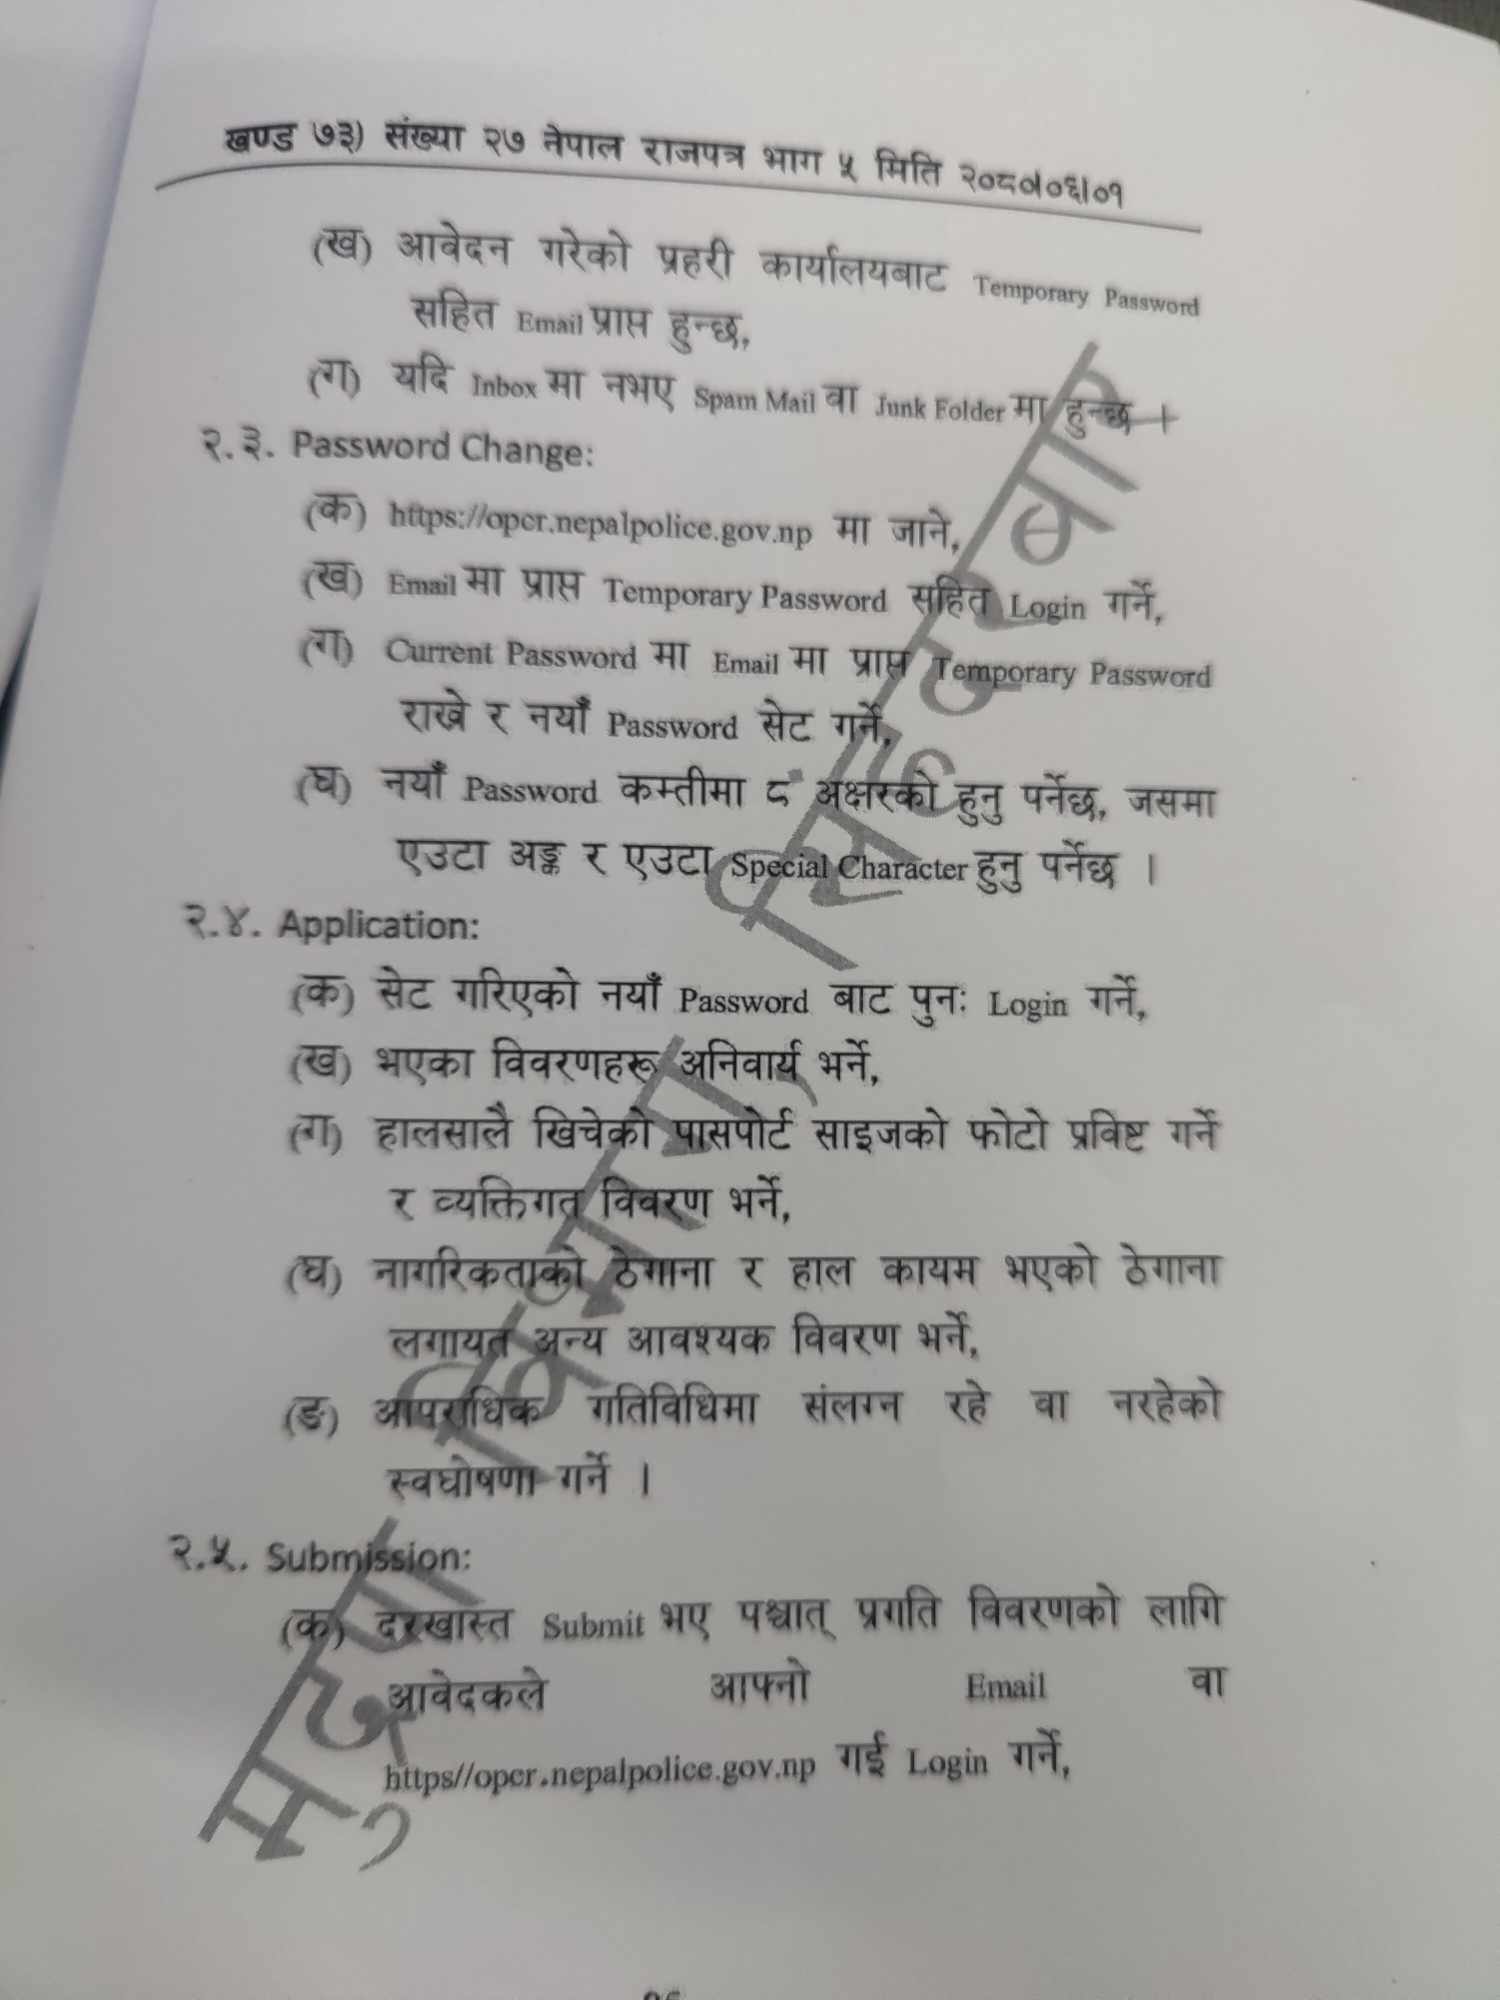 खण्ड ७३) संख्या २७ नेपाल राजपत्र भाग ५ मिति २०८०।०६।०१
(ख) आवेदन गरेको प्रहरी कार्यालयबाट Temporary Password
सहित Email प्राप्त हुन्छ,
(ग) यदि Inbox मा नभए Spam Mail वा Junk Folder मा हुन्छ ।
२.३. Password Change:
(क) https://opcr.nepalpolice.gov.np मा जाने,
(ख) Email मा प्राप्त Temporary Password सहित Login गर्ने,
(ग) Current Password मा Email मा प्राप्त Temporary Password
राखे र नयाँ Password सेट गर्ने,
(घ) नयाँ Password कम्तीमा ८ अक्षरको हुनु पर्नेछ, जसमा
एउटा अङ्क र एउटा Special Character हुनु पर्नेछ ।
२.४. Application:
(क) सेट गरिएको नयाँ Password बाट पुनः Login गर्ने,
(ख) भएका विवरणहरू अनिवार्य भर्ने,
(ग) हालसालै खिचेको पासपोर्ट साइजको फोटो प्रविष्ट गर्ने
र व्यक्तिगत विवरण भर्ने,
(घ) नागरिकताको ठेगाना र हाल कायम भएको ठेगाना
लगायत अन्य आवश्यक विवरण भर्ने,
(ङ) आपराधिक गतिविधिमा संलग्न रहे वा नरहेको
स्वघोषणा गर्ने ।
२.५. Submission:
(क) दरखास्त Submit भए पश्चात् प्रगति विवरणको लागि
आवेदकले आफ्नो Email वा
https//opcr.nepalpolice.gov.np गई Login गर्ने,
मुद्रण विभाग, सिंहदरबार